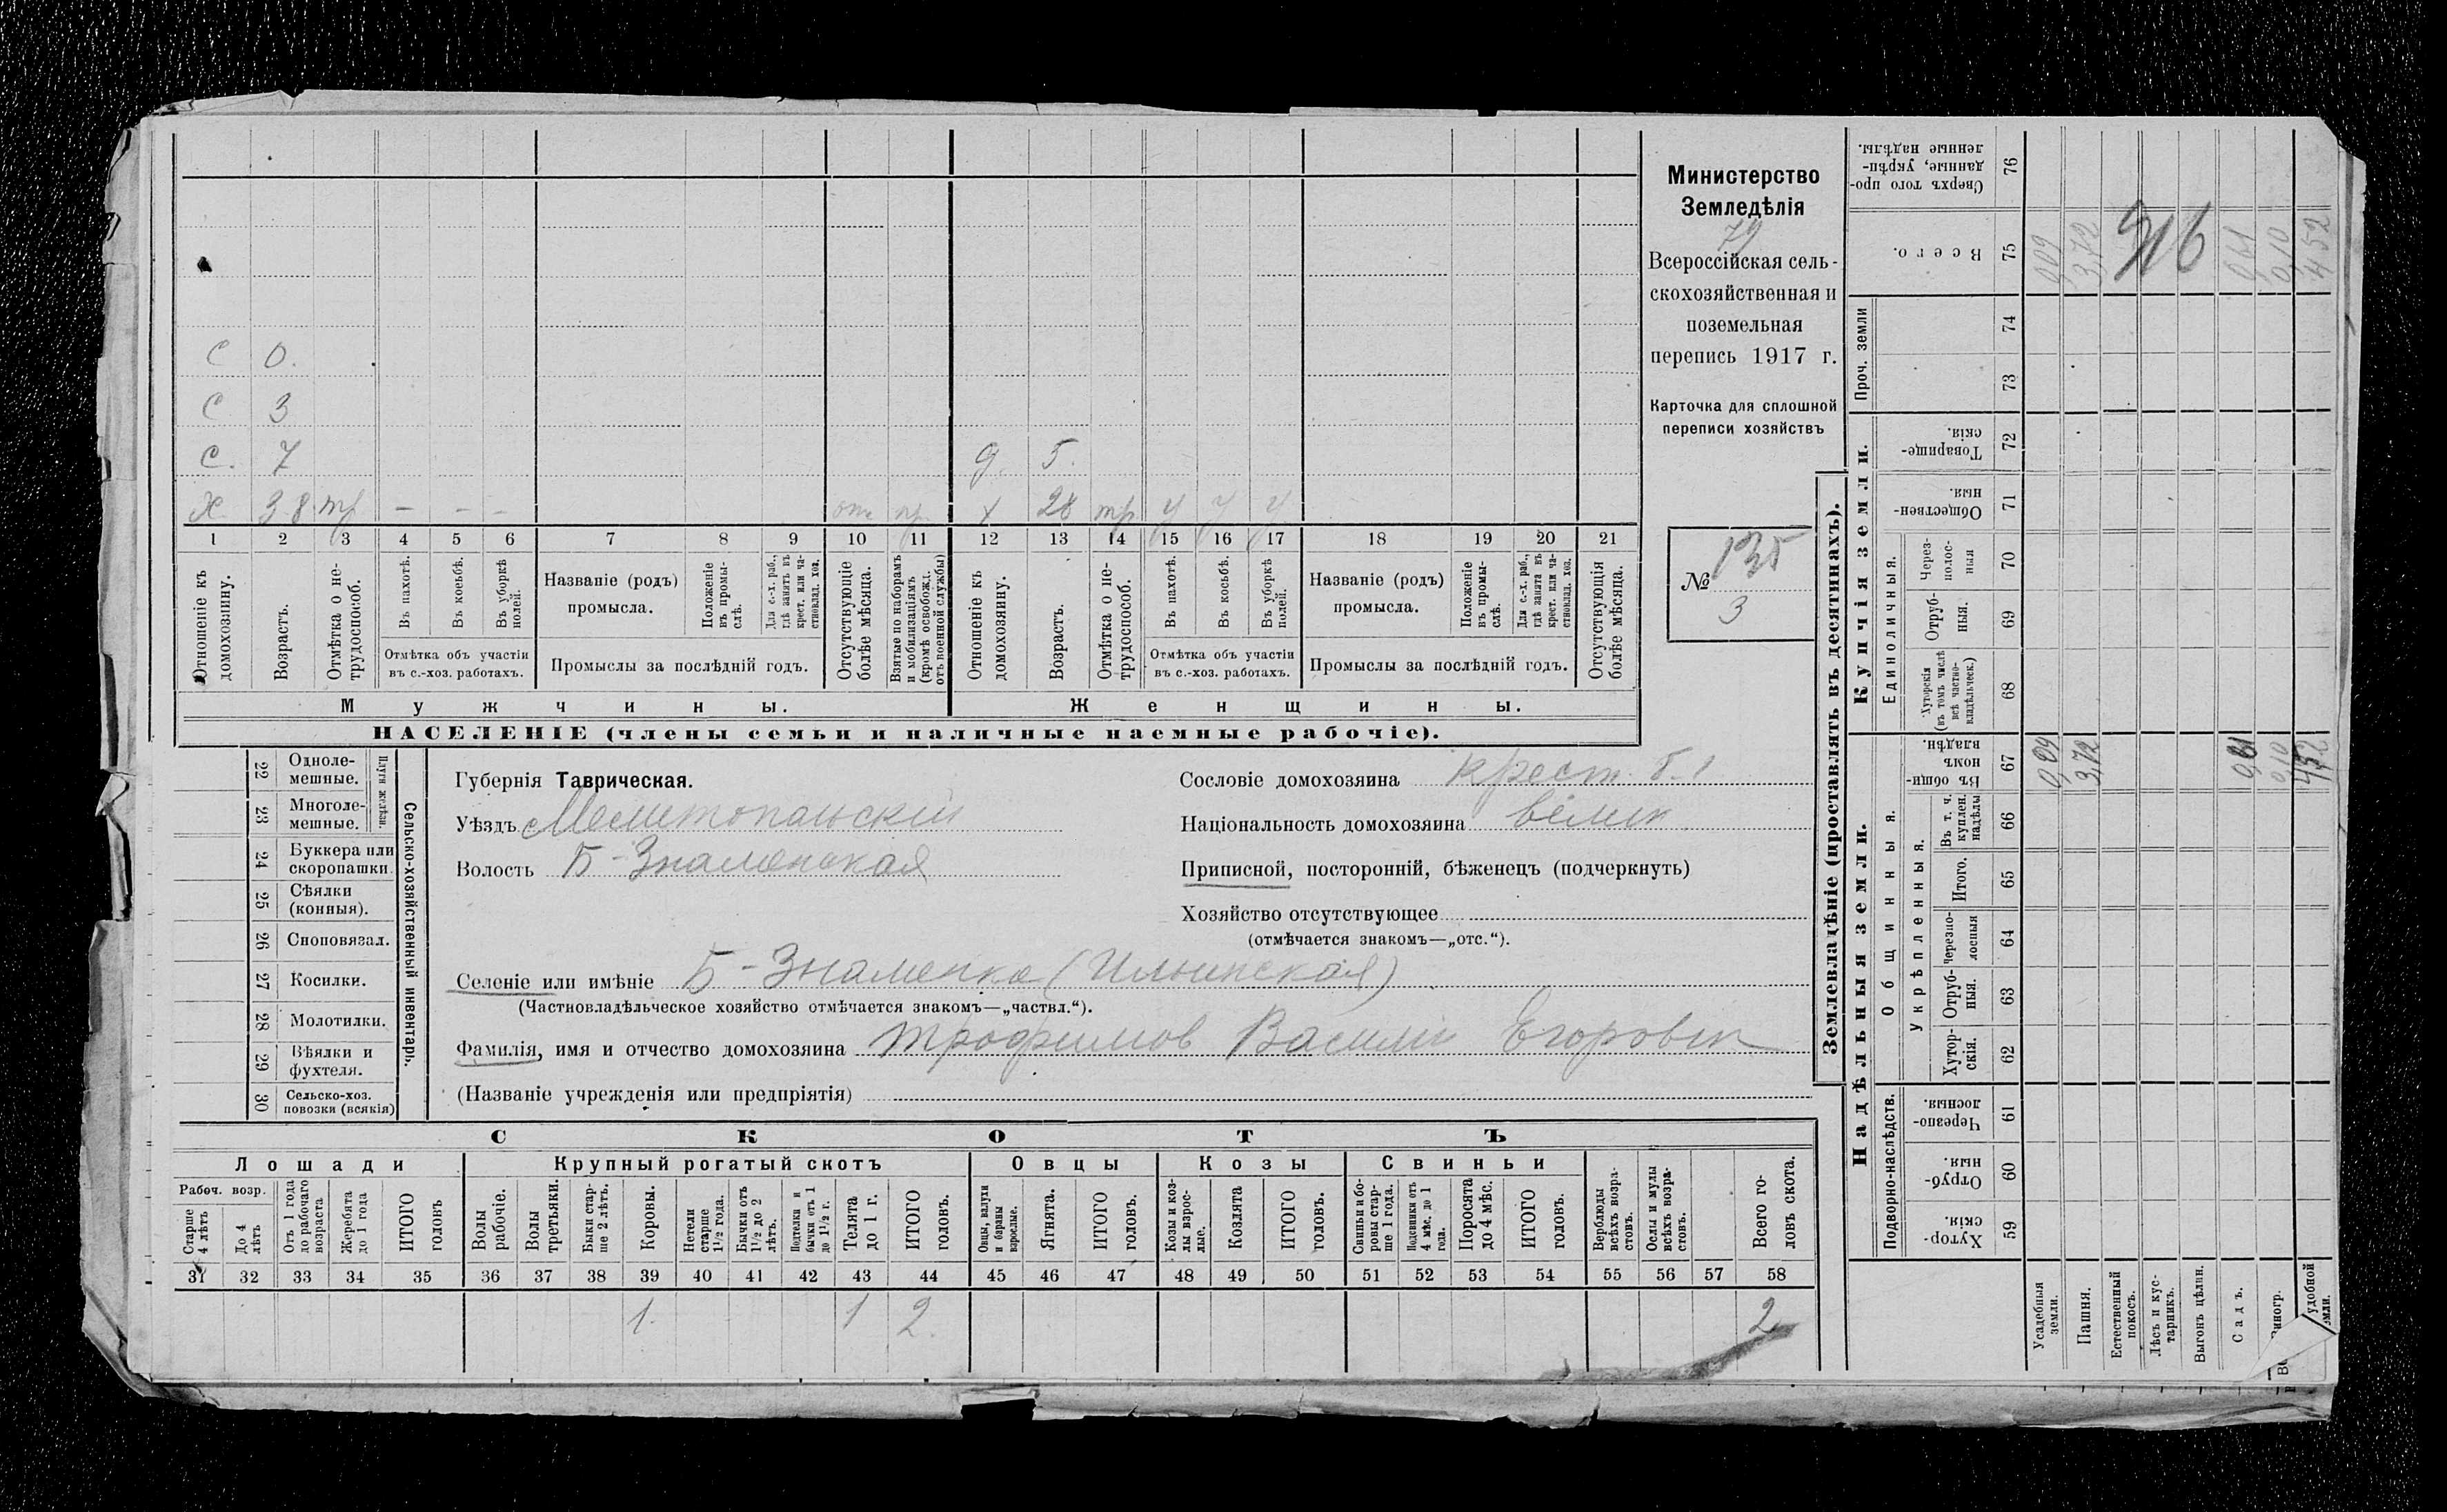 Министерство
Земледѣлія
79
Всероссійская сель-
скохозяйственная и
поземельная
перепись 1917 г.
Карточка для сплошной
переписи хозяйствъ
№ 135
3
С 0.
С 3
С. 7
д. 5.
Х 38 тр - - -
отс
х 28 тр у у у
1 2 3 4 5 6 7 8 9 10 11 12 13 14 15 16 17 18 19 20 21
Отношеніе къ домохозяину.
Возрастъ.
Отмѣтка о не-трудоспособ.
Въ пахотѣ.
Въ косьбѣ.
Въ уборкѣ полей.
Отмѣтка объ участіи
въ с.-хоз. работахъ.
Названіе (родъ)
промысла.
Положеніе въ промы-слѣ.
Для с.-х. раб., гдѣ занятъ въ крест. или ча-стновлад. хоз.
Промыслы за послѣдній годъ.
Отсутствующіе болѣе мѣсяца.
Взятые по наборамъ и мобилизаціямъ (кромѣ освобожд. отъ военной службы)
Отношеніе къ домохозяину.
Возрастъ.
Отмѣтка о не-трудоспособ.
Въ пахотѣ.
Въ косьбѣ.
Въ уборкѣ полей.
Отмѣтка объ участіи
въ с.-хоз. работахъ.
Названіе (родъ)
промысла.
Положеніе въ промы-слѣ.
Для с.-х. раб., гдѣ занята въ крест. или ча-стновлад. хоз.
Промыслы за послѣдній годъ.
Отсутствующія болѣе мѣсяца.
Мужчины.
Женщины.
НАСЕЛЕНІЕ (члены семьи и наличные наемные рабочіе).
22 Одноле-мешные.
Плуги желѣзн.
23 Многоле-мешные.
24 Буккера или скоропашки.
25 Сѣялки (конныя).
26 Сноповязал.
27 Косилки.
28 Молотилки.
29 Вѣялки и фухтеля.
30 Сельско-хоз. повозки (всякія)
Сельско-хозяйственный инвентарь.
Губернія Таврическая.
Уѣздъ Мелитопольскій
Волость Б-Знаменская
Сословіе домохозяина крест.
Національность домохозяина велик
Приписной, посторонній, бѣженецъ (подчеркнуть)
Хозяйство отсутствующее
(отмѣчается знакомъ—„отс.“).
Селеніе или имѣніе Б-Знаменка (Ильинская)
(Частновладѣльческое хозяйство отмѣчается знакомъ—„частвл.“).
Фамилія, имя и отчество домохозяина Трофимов Василій Егорович
(Названіе учрежденія или предпріятія)
СКОТЪ
Лошади
Крупный рогатый скотъ
Овцы
Козы
Свиньи
Рабоч. возр.
Старше 4 лѣтъ
До 4 лѣтъ
Отъ 1 года до рабочаго возраста
Жеребята до 1 года
ИТОГО головъ
Волы рабочіе.
Волы третьяки.
Быки стар-ше 2 лѣтъ.
Коровы.
Нетели старше 1½ года.
Бычки отъ 1½ до 2 лѣтъ.
Подтелки и бычки отъ 1 до 1½ г.
Телята до 1 г.
ИТОГО головъ.
Овцы, валухи и бараны взрослые.
Ягнята.
ИТОГО головъ.
Козы и коз-лы взрос-лые.
Козлята
ИТОГО головъ.
Свиньи и бо-ровы стар-ше 1 года.
Подсвинки отъ 4 мѣс. до 1 года.
Поросята до 4 мѣс.
ИТОГО головъ.
Верблюды всѣхъ возра-стовъ.
Ослы и мулы всѣхъ возра-стовъ.
Всего го-ловъ скота.
31 32 33 34 35 36 37 38 39 40 41 42 43 44 45 46 47 48 49 50 51 52 53 54 55 56 57 58
1. 1 2. 2
Землевладѣніе (проставлять въ десятинахъ).
Надѣльныя земли.
Купчія земли.
Проч. земли
Подворно-наслѣдств.
Общинныя.
Укрѣпленныя.
Единоличныя.
Хутор-скія. 59
Отруб-ныя. 60
Черезпо-лосныя. 61
Хутор-скія. 62
Отруб-ныя. 63
Черезпо-лосныя 64
Итого. 65
Въ т. ч. куплен. надѣлы 66
Въ общин-номъ владѣн. 67
Хуторскія (въ томъ числѣ всѣ частно-владѣльческ.) 68
Отруб-ныя. 69
Через-полос-ныя 70
Обществен-ныя. 71
Товарище-скія. 72
73
74
Всего. 75
Сверхъ того про-данные, укрѣп-ленные надѣлы. 76
Усадебныя земли.
0,09 009
Пашня.
3,72 3,72
Естественный покосъ.
Лѣсъ и кус-тарникъ.
Выгонъ цѣлин.
Садъ.
0,61 0,61
Виногр.
0,10 0,10
удобной
4,52 4 52
916